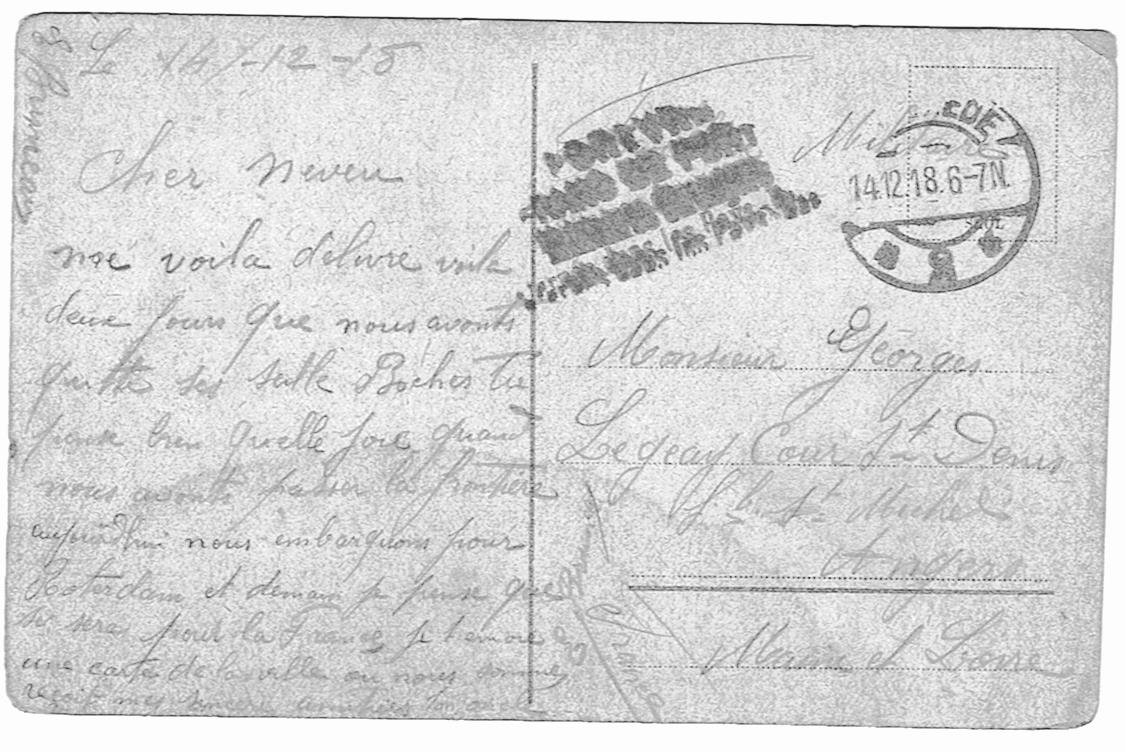 Le 14-12-18
Cher neveu
me voila délivré voila
deux jours que nous avonts
quitté ses salle Boches tu
pense bien quelle joie quand
nous avonts passer la frontière
aujourd'hui nous embarquons pour
Roterdam et demain je pense que
se sera pour la France je t'envoie
une carte de la ville ou nous sommes
reçoit mes sincère amitiées ton oncle
Bruneau
FRANC DE PORT
Militaire
14.12.18.6-7N.
Monsieur Georges
Legeay Cour St Denis
St Michel
Angers
Maine et Loire